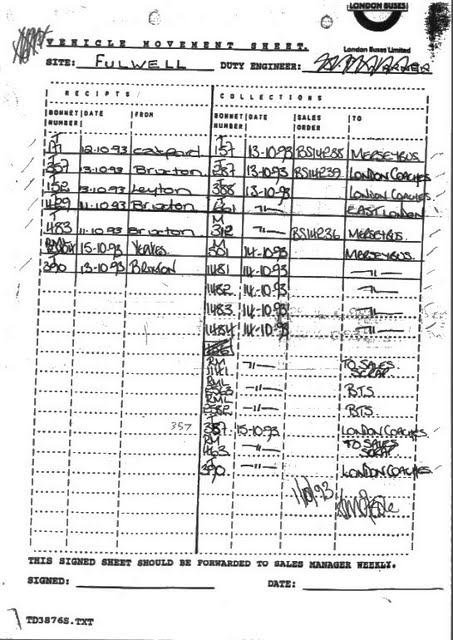 LONDON BUSES
London Buses Limited
VEHICLE MOVEMENT SHEET.
SITE: FULWELL DUTY ENGINEER:
RECIPTS / COLLECTIONS
BONNET NUMBER DATE FROM BONNET NUMBER DATE SALES ORDER TO
12.10.93 T 157 13-10.93 BS14238 MERSEYBUS.
T 367 13.10.93 Brixton T 267 13-10.93 BS14239 LONDON COACHES
T 152 13.10.93 Leyton T 388 13-10-93 LONDON COACHES
429 11.10.93 Brixton 261 —"— EAST LONDON
T 483 11.10.93 Brixton M 312 —"— BS14236 MERSEYBUS.
15.10.93 M 501 14.10.93 MERSEYBUS.
T 390 13-10.93 BRIXTON 1481 14-10.93 —"—
1482 14-10.93 —"—
1483 14-10.93 —"—
1484 14-10.93 —"—
RM 1141 —"— TO SALES SCRAP
RML —"— BTS
RML —"— BTS
357 T 357 15.10.93 LONDON COACHES
RM 463 —"— TO SALES SCRAP
T 390 —"— LONDON COACHES
THIS SIGNED SHEET SHOULD BE FORWARDED TO SALES MANAGER WEEKLY.
SIGNED: DATE:
TD3876S.TXT